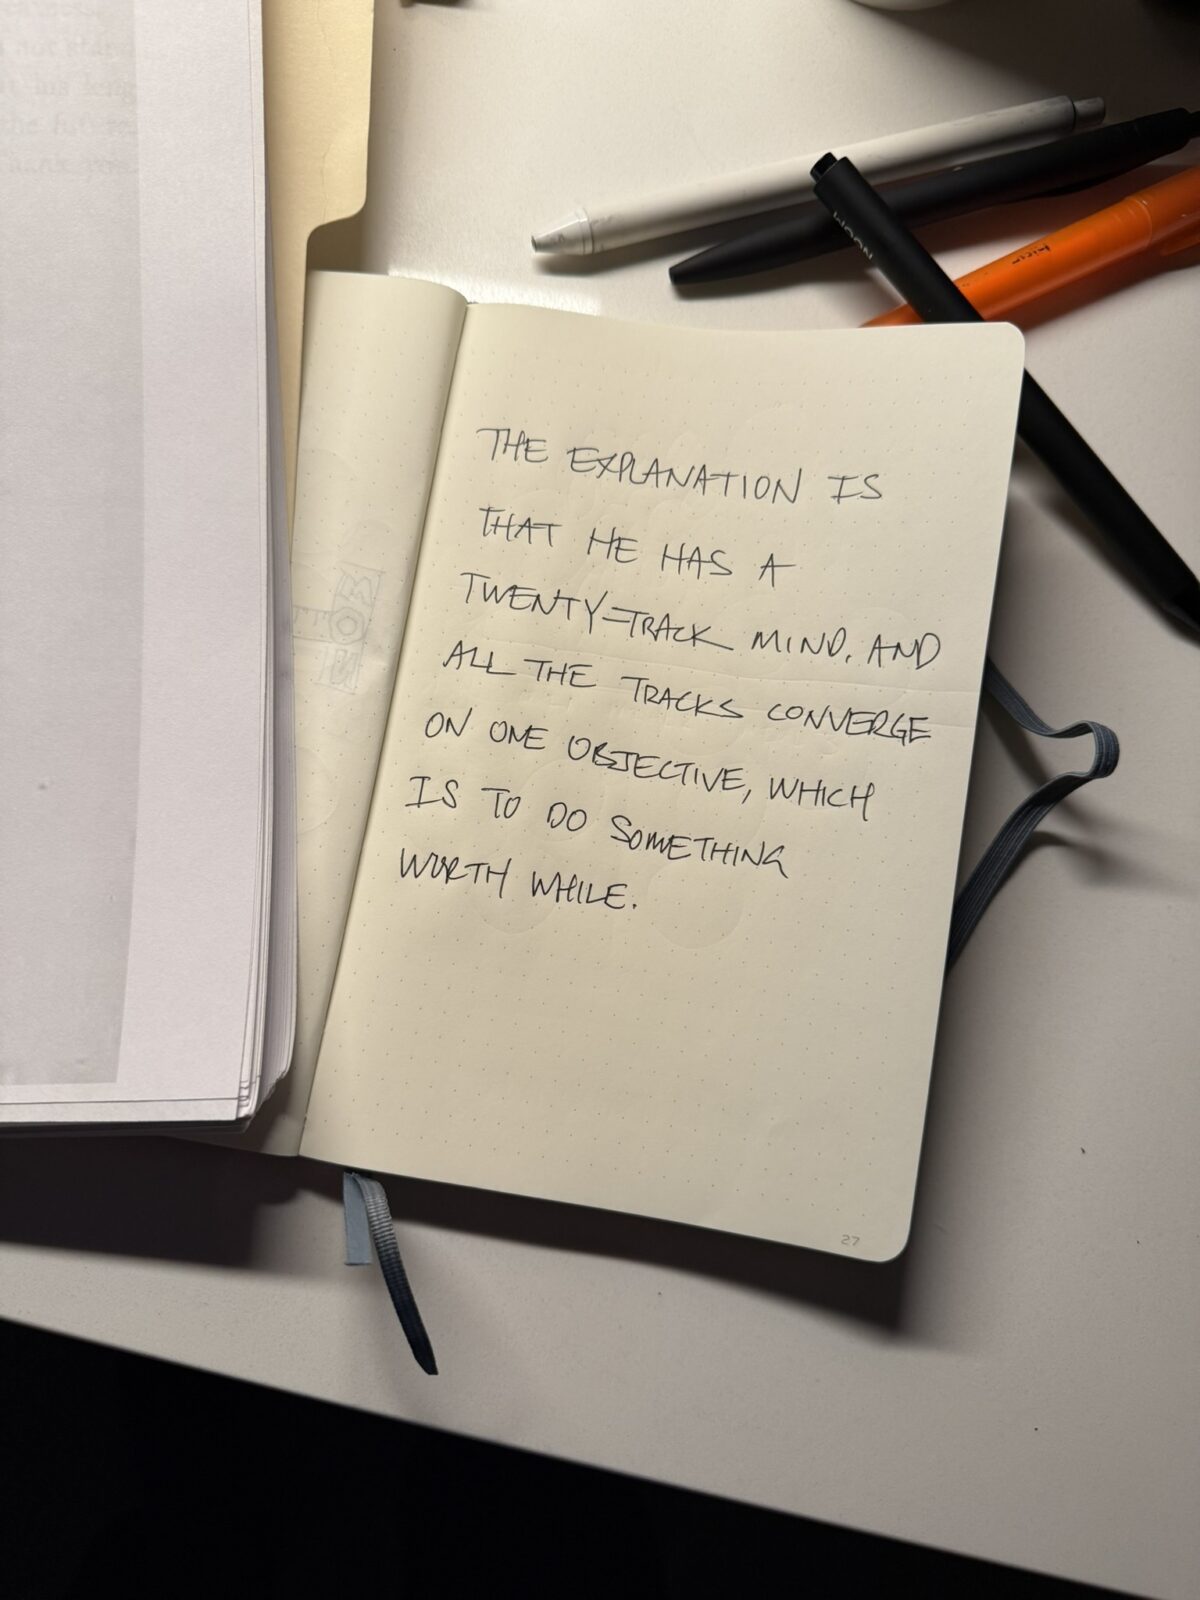 not stand
the
THE EXPLANATION IS
THAT HE HAS A
TWENTY-TRACK MIND, AND
ALL THE TRACKS CONVERGE
ON ONE OBJECTIVE, WHICH
IS TO DO SOMETHING
WORTH WHILE.
27